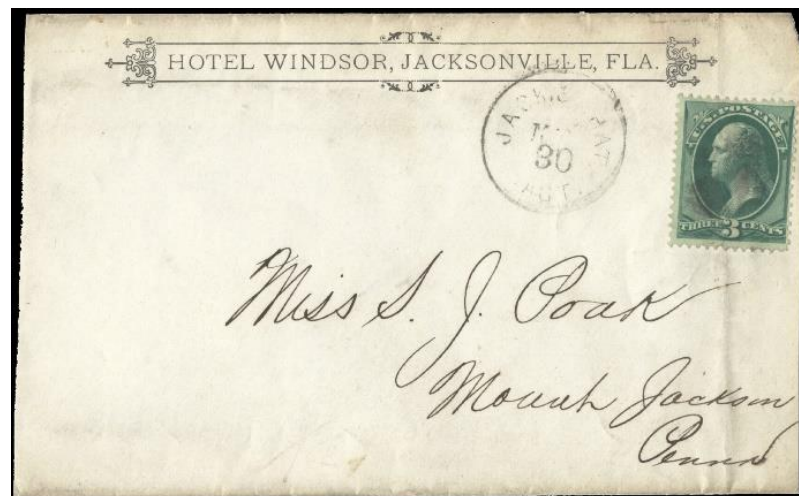 HOTEL WINDSOR, JACKSONVILLE, FLA.
30
AGT.
U.S. POSTAGE
THREE 3 CENTS
Miss S. J. Poak
Mount Jackson
Penna